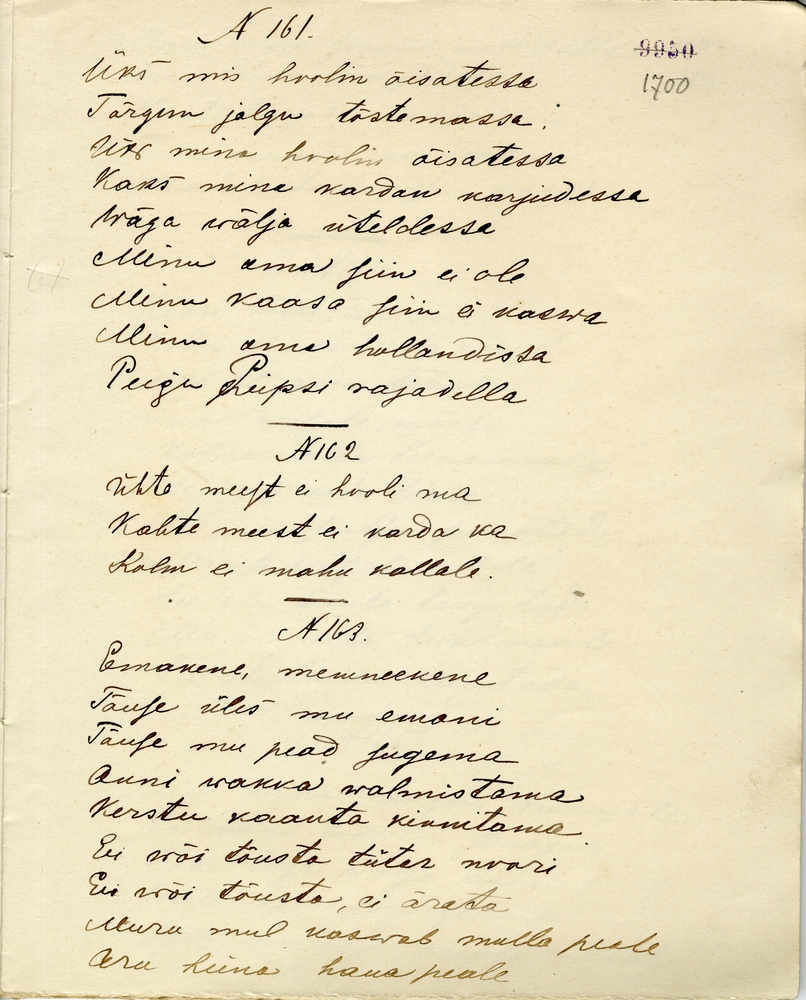 N 161.
9950
1700
Üks mis hoolin õisatessa
Tärgun jalgu tõstemassa.
Üks mina hoolin õisatessa
Kaks mina kardan karjudessa
Wäga wälja üteldessa
Minu oma siin ei ole
Minu kaasa siin ei kaswa
Minu oma hollandissa
Peigu Peipsi rajadella
N 162
Ühte meest ei hooli ma
Kahte meest ei karda ka
Kolm ei mahu kallale.
N 163.
Emakene, memneekene
Tõuse üles mu emani
Tõuse mu pead sugema
Anni wakka walmistama
Kerstu kaanta kinnitama
Ei wõi tõusta tüter noori
Ei wõi tõusta, ei ärata
Muru mul kaswab mulla peale
Aru heina haua peale